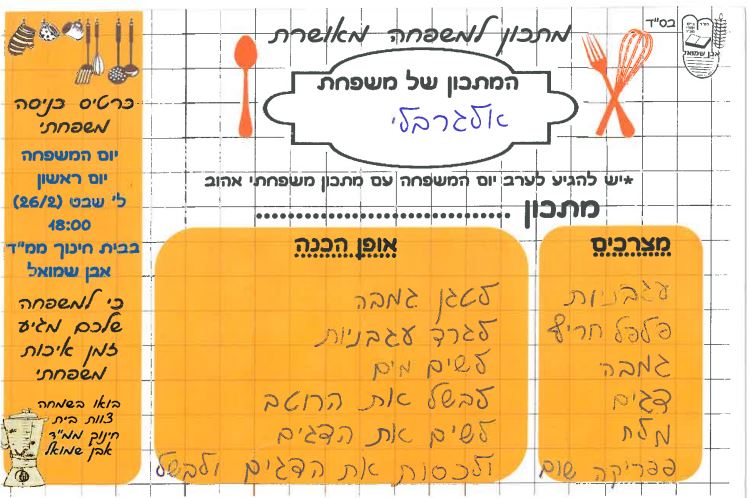 בס"ד
אבן שמואל
מתכון למשפחה מאושרת
המתכון של משפחת
אלגרבלי
*יש להגיע לערב יום המשפחה עם מתכון משפחתי אהוב
מתכון ........................................
מצרכים
עגבניות
פלפל חריף
גמבה
דגים
מלח
פפריקה שום
אופן הכנה
לטגן גמבה
לגרד עגבניות
לשים מים
לבשל את הרוטב
לשים את הדגים
ולכסות את הדגים ולבשל
כרטיס כניסה
משפחתי
יום המשפחה
יום ראשון
ל' שבט (26/2)
18:00
בבית חינוך ממ"ד
אבן שמואל
כי למשפחה
שלכם מגיע
זמן איכות
משפחתי
בואו בשמחה
צוות בית
חינוך ממ"ד
אבן שמואל